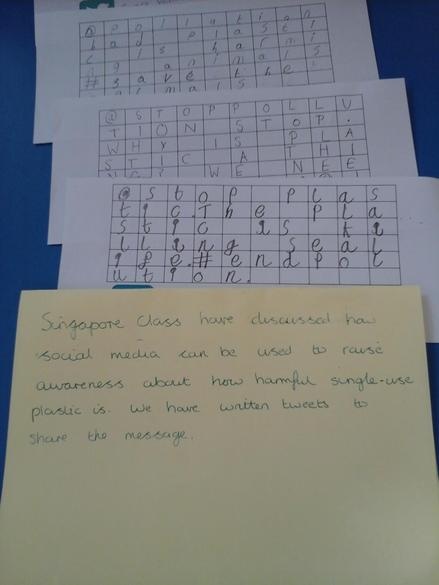 @ p o l l u t i o n
b a d p l a s t i
c i s h a r m i
n g a n i m a l s
# s a v e t h e
a n i m a l s
@ S T O P P O L L U
T I O N S T O P .
W H Y I S P L A
S T I C A T H I
N G ? W E N E E
@ s t o p p l a s
t i c . T h e p l a
s t i c i s k i
l l i n g s e a l
i f e . # e n d p o l
u t i o n .
Singapore Class have discussed how
social media can be used to raise
awareness about how harmful single-use
plastic is. We have written tweets to
share the message.